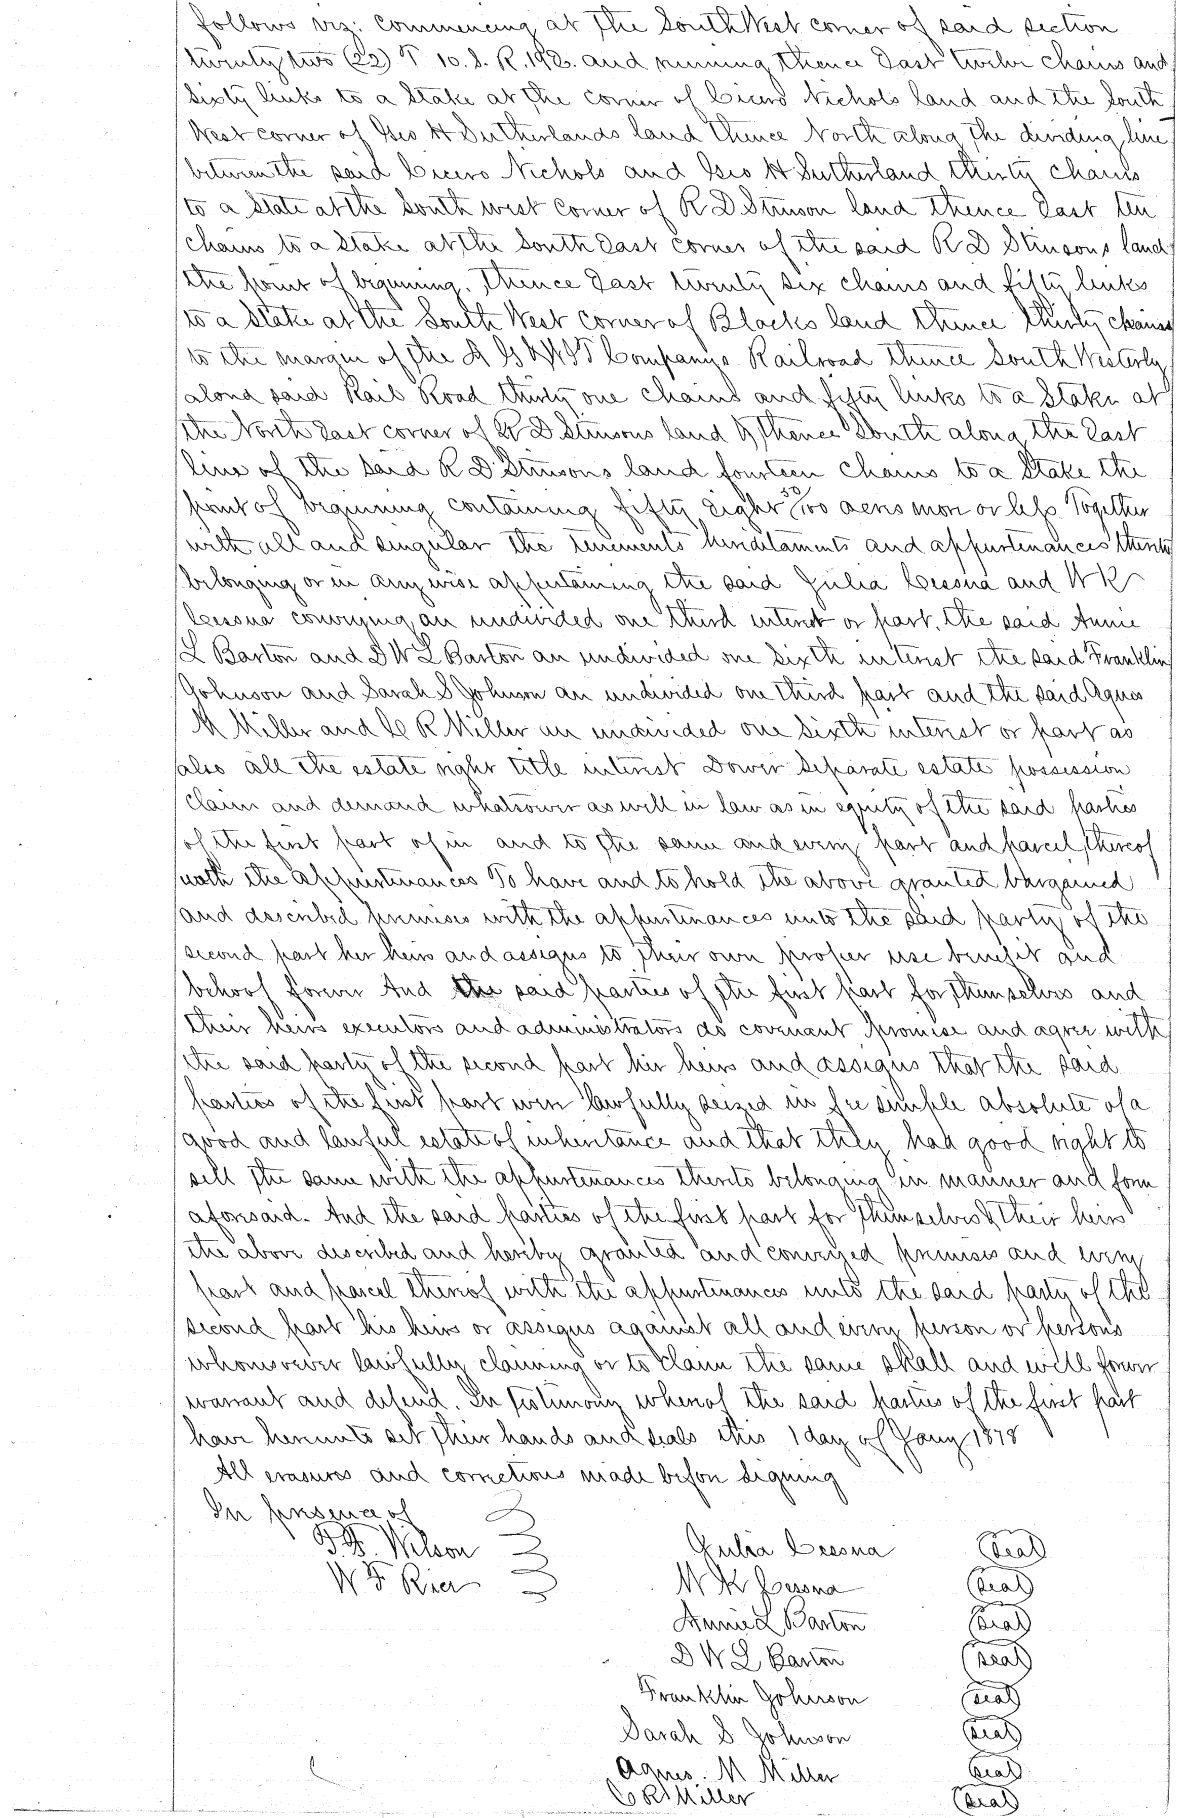 follows viz: commencing at the South West corner of said section
twenty two (22) T 10. S. R. 19 E. and running thence East twelve chains and
sixty links to a Stake at the corner of Cicero Nichols land and the South
West corner of Geo H Sutherlands land thence North along the dividing line
between the said Cicero Nichols and Geo H Sutherland thirty chains
to a State at the South west corner of R D Stinson land thence East ten
chains to a Stake at the South East corner of the said R D Stinsons land
the point of begining. Thence East twenty six chains and fifty links
to a Stake at the South West corner of Blacks land thence thirty chains
to the margin of the A G & W I T Companys Railroad thence South Westerly
along said Rail Road thirty one chains and fifty links to a Stake at
the North East corner of R D Stinsons land & thence South along the East
line of the said R D Stinsons land fourteen chains to a Stake the
point of beginning containing fifty eight 50/100 acres more or less. Together
with all and singular the tenements hereditaments and appurtenances thereto
belonging or in any wise appertaining the said Julia Cessna and W K
Cessna conveying an undivided one third interest or part, the said Annie
L Barton and D W L Barton an undivided one sixth interest the said Franklin
Johnson and Sarah S Johnson an undivided one third part and the said Agnes
M Miller and C R Miller an undivided one sixth interest or part as
also all the estate right title interest Dower separate estate possession
claim and demand whatsoever as well in law as in equity of the said parties
of the first part of in and to the same and every part and parcel thereof
with the appurtenances To have and to hold the above granted bargained
and described premises with the appurtenances unto the said party of the
second part her heirs and assigns to their own proper use benefit and
behoof forever And the said parties of the first part for themselves and
their heirs executors and administrators do covenant promise and agree with
the said party of the second part his heirs and assigns that the said
parties of the first part were lawfully seized in fee simple absolute of a
good and lawful estate of inheritance and that they had good right to
sell the same with the appurtenances thereto belonging in manner and form
aforesaid. And the said parties of the first part for themselves & their heirs
the above described and hereby granted and conveyed premises and every
part and parcel thereof with the appurtenances unto the said party of the
second part his heirs or assigns against all and every person or persons
whomsoever lawfully claiming or to claim the same shall and will forever
warrant and defend. In testimony whereof the said parties of the first part
have hereunto set their hands and seals this 1 day of Jany 1878
All erasures and corrections made before signing
In presence of
F. F. Wilson Julia Cessna (Seal)
W F Rice W K Cessna (Seal)
Annie L Barton (Seal)
D W L Barton (Seal)
Franklin Johnson (Seal)
Sarah S Johnson (Seal)
Agnes. M Miller (Seal)
C R Miller (Seal)